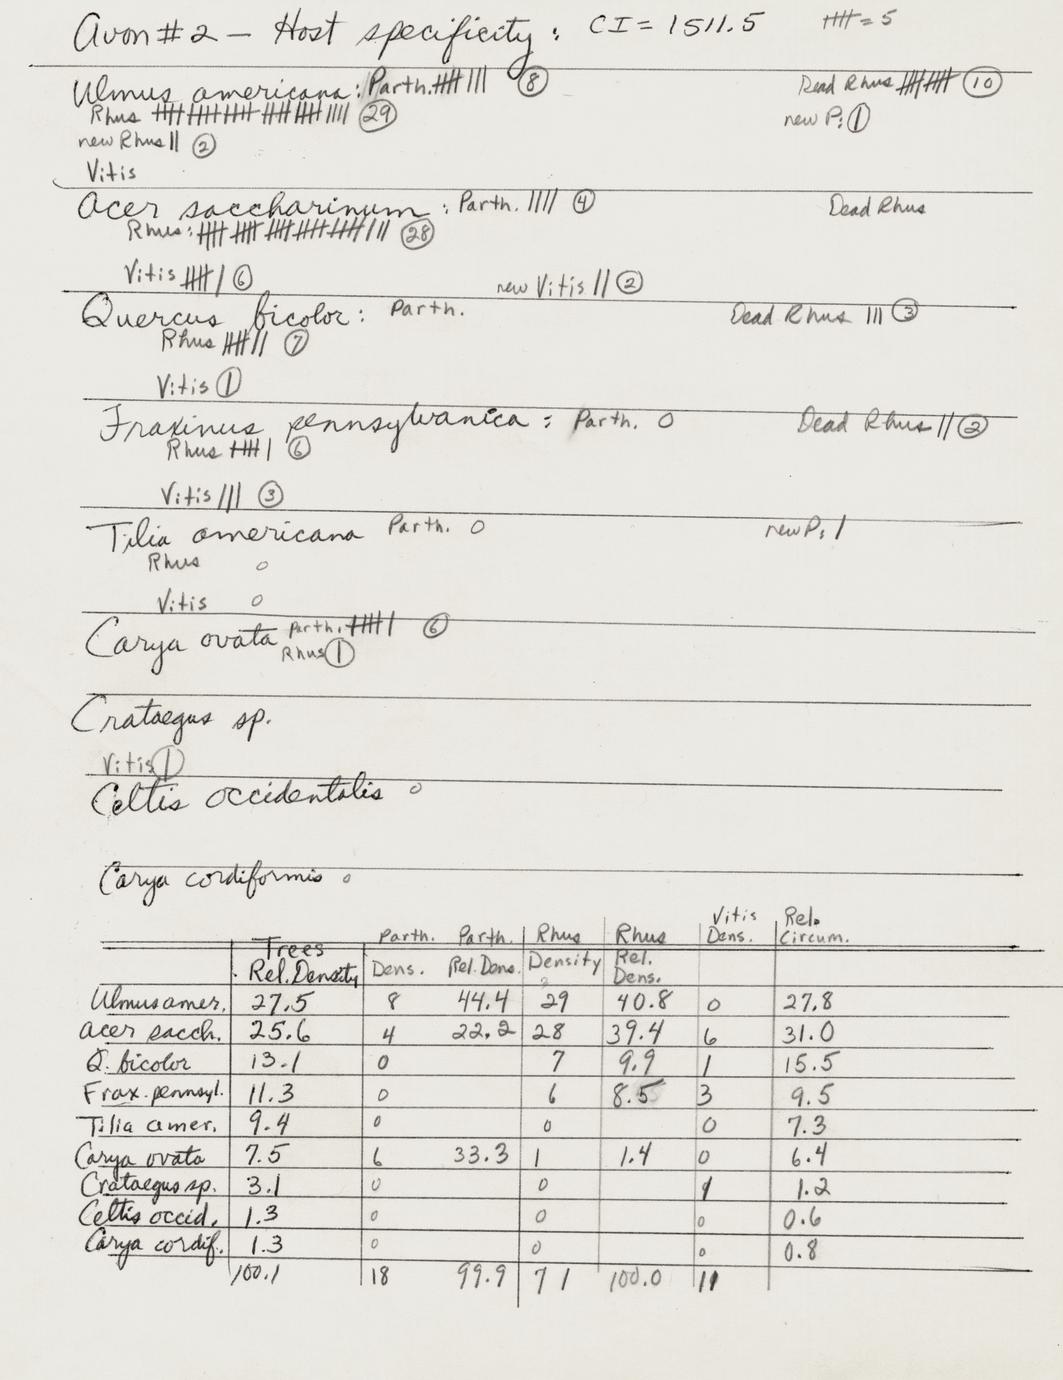 Avon #2 — Host specificity: CI = 1511.5 卌 = 5
Ulmus americana: Parth. 卌 ||| (8) Dead Rhus 卌 卌 (10)
Rhus 卌 卌 卌 卌 卌 |||| (29) new P: (1)
new Rhus || (2)
Vitis
Acer saccharinum: Parth. |||| (4) Dead Rhus
Rhus: 卌 卌 卌 卌 卌 ||| (28)
Vitis 卌 | (6) new Vitis || (2)
Quercus bicolor: Parth. Dead Rhus ||| (3)
Rhus 卌 || (7)
Vitis (1)
Fraxinus pennsylvanica: Parth. 0 Dead Rhus || (2)
Rhus 卌 | (6)
Vitis ||| (3)
Tilia americana Parth. 0 new P: |
Rhus 0
Vitis 0
Carya ovata Parth. 卌 | (6)
Rhus (1)
Crataegus sp.
Vitis (1)
Celtis occidentalis 0
Carya cordiformis 0
Trees Rel. Density Parth. Dens. Parth. Rel. Dens. Rhus Density Rhus Rel. Dens. Vitis Dens. Rel. Circum.
Ulmus amer. 27.5 8 44.4 29 40.8 0 27.8
Acer sacch. 25.6 4 22.2 28 39.4 6 31.0
Q. bicolor 13.1 0 7 9.9 1 15.5
Frax. pennsyl. 11.3 0 6 8.5 3 9.5
Tilia amer. 9.4 0 0 0 7.3
Carya ovata 7.5 6 33.3 1 1.4 0 6.4
Crataegus sp. 3.1 0 0 1 1.2
Celtis occid. 1.3 0 0 0 0.6
Carya cordif. 1.3 0 0 0 0.8
100.1 18 99.9 71 100.0 11